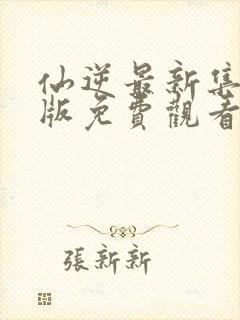 仙逆最新集
版免費觀看
張新新